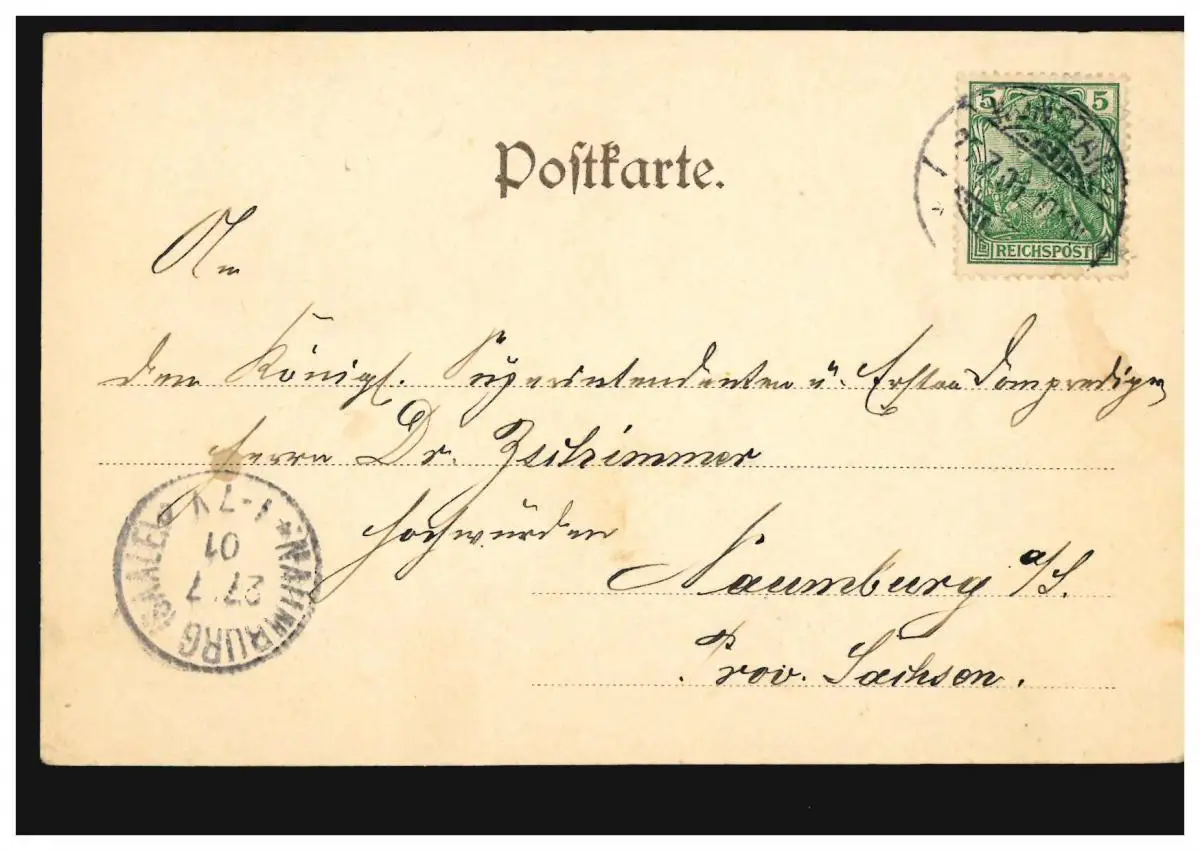 5 5
REICHSPOST
Postkarte.
An
den Königl. Superintendenten u. Ersten Domprediger
Herrn Dr. Zschimmer
Hochwürden
Naumburg a/S.
Prov. Sachsen.
* NAUMBURG (SAALE) a
27.7
01
1-7V